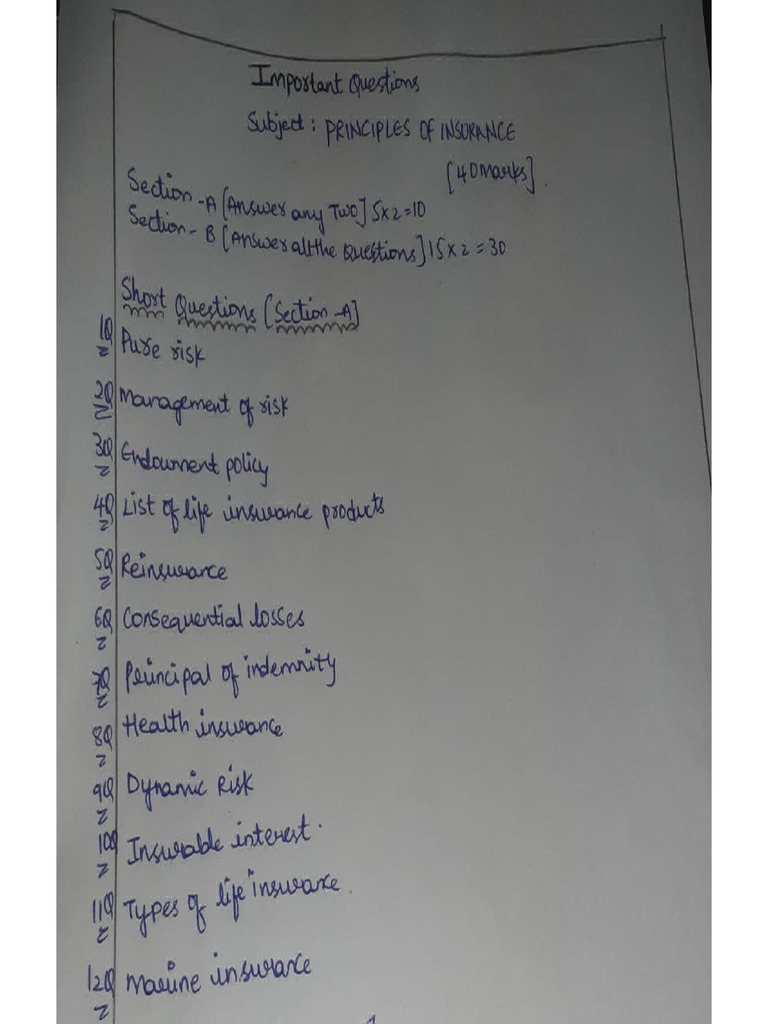 Important Questions
Subject: PRINCIPLES OF INSURANCE
[40 Marks].
Section-A [Answer any Two] 5x2=10
Section-B [Answer all the Questions] 15x2=30
Short Questions [Section-A]
1Q Pure risk
2Q Management of risk
3Q Endowment policy
4Q List of life insurance products
5Q Reinsurance
6Q Consequential losses
7Q Principal of indemnity
8Q Health insurance
9Q Dynamic Risk
10Q Insurable interest.
11Q Types of life insurance.
12Q Marine insurance